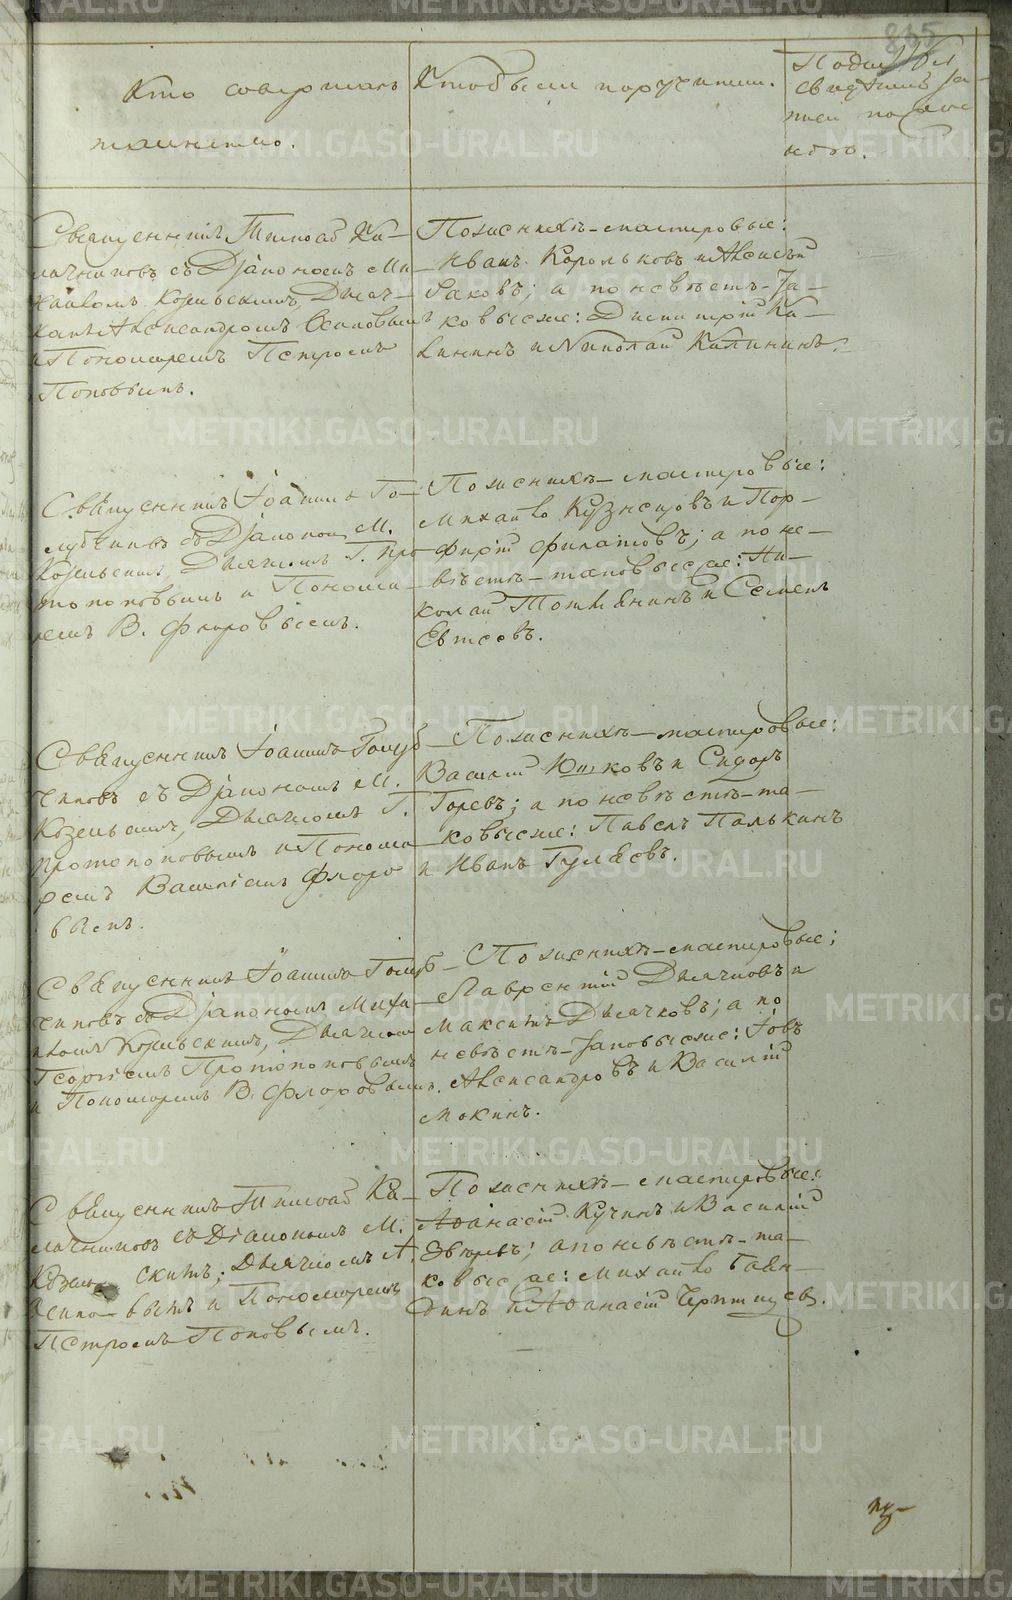 835
Кто совершалъ
таинство.
Кто были поручители.
свидѣтелей за-
писи по
Священникъ Тимоѳей Ка-
лачниковъ съ Діакономъ Ми-
хаиломъ Козельскимъ, Дьяч-
комъ Александромъ Осиповымъ
и Пономаремъ Петромъ
Поповымъ.
По женихѣ—мастеровые:
Иванъ Корольковъ и Алексѣй
Гаковъ; а по невѣстѣ—та-
ковые же: Димитрій Ка-
лининъ и Николай Калининъ.
Священникъ Іоаннъ Го-
лубчиковъ съ Діакономъ М.
Козельскимъ, Дьячкомъ Г. Про
топоповымъ и Понома-
ремъ В. Флоровымъ.
По женихѣ—мастеровые:
Михайло Кузнецовъ и Пор-
фирій Филатовъ; а по не-
вѣстѣ—таковые же: Ни-
колай и Семенъ
Евтеевъ.
Священникъ Іоаннъ Голуб-
чиковъ съ Діакономъ М.
Козельскимъ, Дьячкомъ Г.
Протопоповымъ и Понома
ремъ Василіемъ Флоро
вымъ.
По женихѣ—мастеровые:
Василій Юшковъ и Сидоръ
Горевъ; а по невѣстѣ—та-
ковые же: Павелъ Палькинъ
и Иванъ Гуляевъ.
Священникъ Іоаннъ Голуб-
чиковъ съ Діакономъ Миха-
иломъ Козельскимъ, Дьячкомъ
Георгіемъ Протопоповымъ
и Пономаремъ В. Флоровымъ.
По женихѣ—мастеровые:
Лаврентій Дьячковъ и
Максимъ Дьячковъ; а по
невѣстѣ—таковые же: Іовъ
Александровъ и Василій
Мокинъ.
Священникъ Тимоѳей Ка-
лачниковъ съ Діакономъ М.
Козельскимъ; Дьячкомъ А.
Осиповымъ и Пономаремъ
Петромъ Поповымъ.
По женихѣ—мастеровые:
Аѳанасій Кучинъ и Василій
Звѣревъ; а по невѣстѣ—та-
ковые же: Михайло Баян-
динъ и Аѳанасій
METRIKI.GASO-URAL.RU